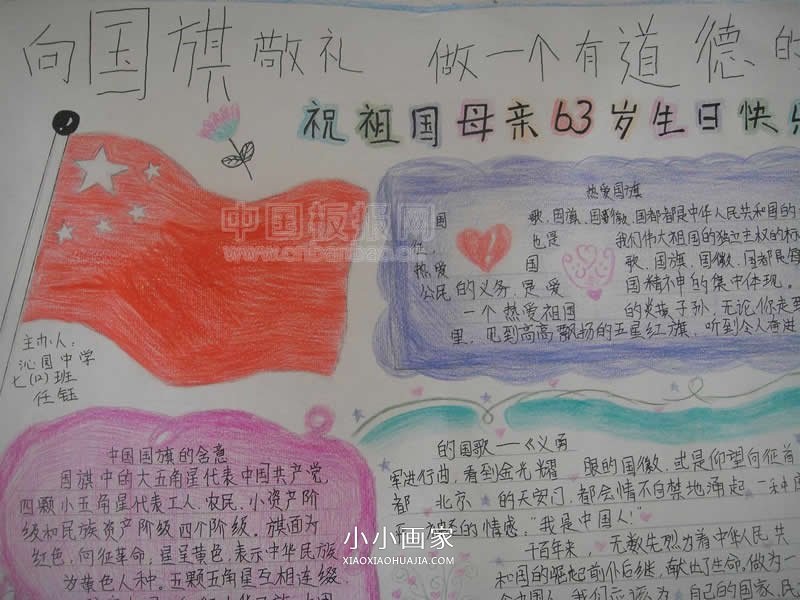 向国旗敬礼 做一个有道德的
祝祖国母亲63岁生日快乐
中国板报网
主办人:
沁园中学
七(12)班
任钰
热爱国旗
国 歌、国旗、国徽、国都都是中华人民共和国的
也是 我们伟大祖国的独立主权的标
热爱 国 歌、国旗、国徽、国都
公民的义务,是爱 国精神的集中体现。
一个热爱祖国 的炎孩子孙,无论你走到
里,见到高高飘扬的五星红旗,听到令人奋进
中国国旗的含意
国旗中的大五角星代表中国共产党
四颗小五角星代表工人、农民、小资产阶
级和民族资产阶级四个阶级。旗面为
红色,向征革命,星呈黄色,表示中华民族
为黄色人种。五颗五角星互相连缀、
的国歌——《义勇
军进行曲,看到金光耀 眼的国徽,或是仰望向征首
都 北京 的天安门,都会情不自禁地涌起一种
的情感:"我是中国人!"
千百年来, 无数先烈为着中华人民共
和国的崛起前仆后继,献出了生命。做为一
个中国人,我们应该为 自己的国家、民
小小画家
XIAOXIAOHUAJIA.COM